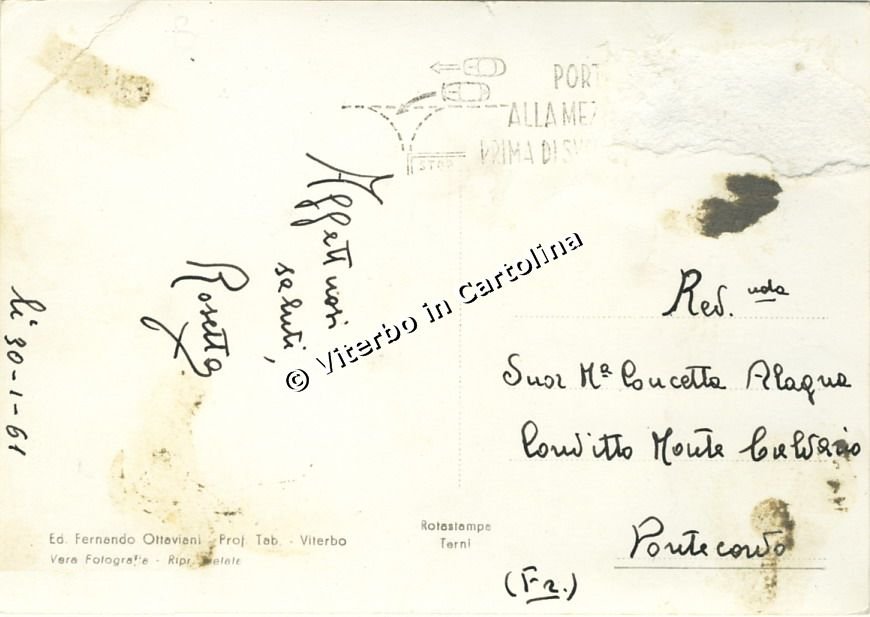 PORT
ALLA MEZ
PRIMA DI SV
STOP
Affettuosi
saluti,
Rosetta
lì 30-1-61
© Viterbo in Cartolina
Rev. nda
Suor Mª Concetta Alagna
Convitto Monte Calvario
Pontecorvo
(Fr.)
Ed. Fernando Ottaviani - Prof. Tab. - Viterbo
Vera Fotografia - Ripr. vietata
Rotastampa
Terni